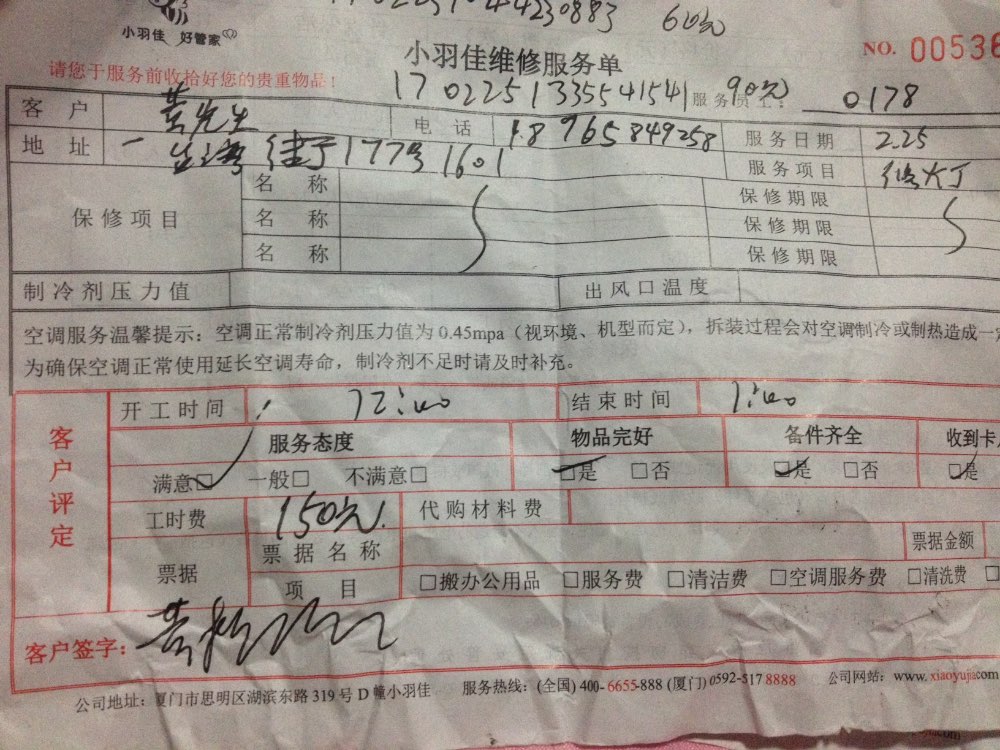 60元
小羽佳 好管家
小羽佳维修服务单
NO. 00536
请您于服务前收拾好您的贵重物品!
17022513355541541 90元
服务员工: 0178
客户 黄先生 电话 18965849258 服务日期 2.25
地址 177号1601 服务项目 修灯
保修项目 名称 保修期限
名称 保修期限
名称 保修期限
制冷剂压力值 出风口温度
空调服务温馨提示:空调正常制冷剂压力值为0.45mpa(视环境、机型而定),拆装过程会对空调制冷或制热造成一
为确保空调正常使用延长空调寿命,制冷剂不足时请及时补充。
客户评定
开工时间 12:00 结束时间 1:00
服务态度 物品完好 备件齐全 收到卡
满意☑ 一般□ 不满意□ ☑是 □否 ☑是 □否 ☑是
工时费 150元. 代购材料费
票据 票据名称 票据金额
项目 □搬办公用品 □服务费 □清洁费 □空调服务费 □清洗费 □
客户签字: 黄
公司地址:厦门市思明区湖滨东路319号D幢小羽佳 服务热线:(全国) 400-6655-888 (厦门) 0592-5178888 公司网站: www.xiaoyujia.com